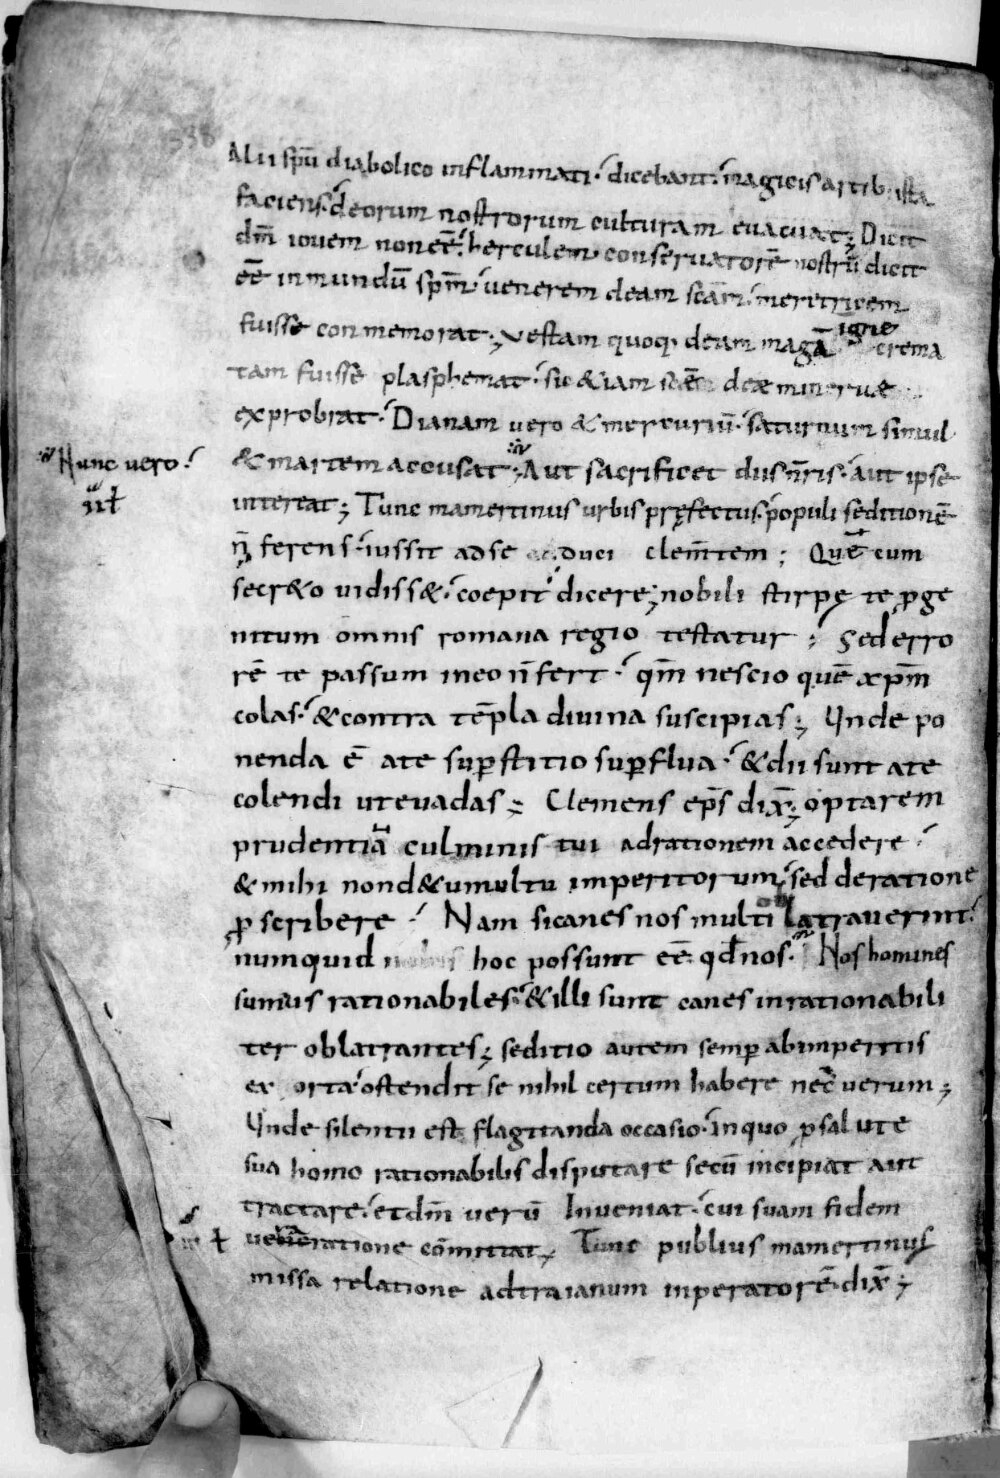 Alii spū diabolico inflammati. dicebant. magicis artib. ista
faciens. deorum nostrorum culturam evacuat; Dicit
dm̄ iovem non eē. herculem conservatorē nostrū dicit
eē inmundū spm̄. venerem deam scām. meretricem
fuisse conmemorat; vestam quoq. deam magā igne crema
tam fuisse plasphemat. sic &iam scāe deæ minervæ
exprobrat. Dianam vero & mercuriū. saturnum simul
Nunc vero.
& martem accusat; Aut sacrificet diis n̄ris. aut ipse
intereat; Tunc mamertinus urbis pręfectus. populi seditionē
n̄ ferens. iussit ad se duci clem̄tem; Quē cum
secr&o vidiss&. coepit dicere; nobili stirpę te ꝓge
nitum omnis romana regio testatur; Sed erro
rē te passum in eo n̄ fert. qm̄ nescio quē xpm̄
colas. & contra tēpla divina suscipias; Unde po
nenda ē a te suꝑstitio suꝑflua. & dii sunt a te
colendi ut evadas; Clemens ep̄s dix̄; optarem
prudentiā culminis tui ad rationem accedere.
& mihi non d& umultu imperitorum. sed de ratione
ꝓscribere. Nam si canes nos multi latraverint.
numquid hoc possunt eē qđ nos. Nos homines
sumus rationabiles. & illi sunt canes inrationabili
ter oblatrantes; seditio autem semꝑ ab imperitis
exorta. ostendit se nihil certum habere nec verum;
Unde silentii est flagitanda occasio. In quo ꝓ salute
sua homo rationabilis disputare secū incipiat aut
tractare. et dm̄ verū Inveniat. cui suam fidem
veneratione cōmittat; Tunc publius mamertinus
missa relatione ad traianum inperatorē. dix̄;